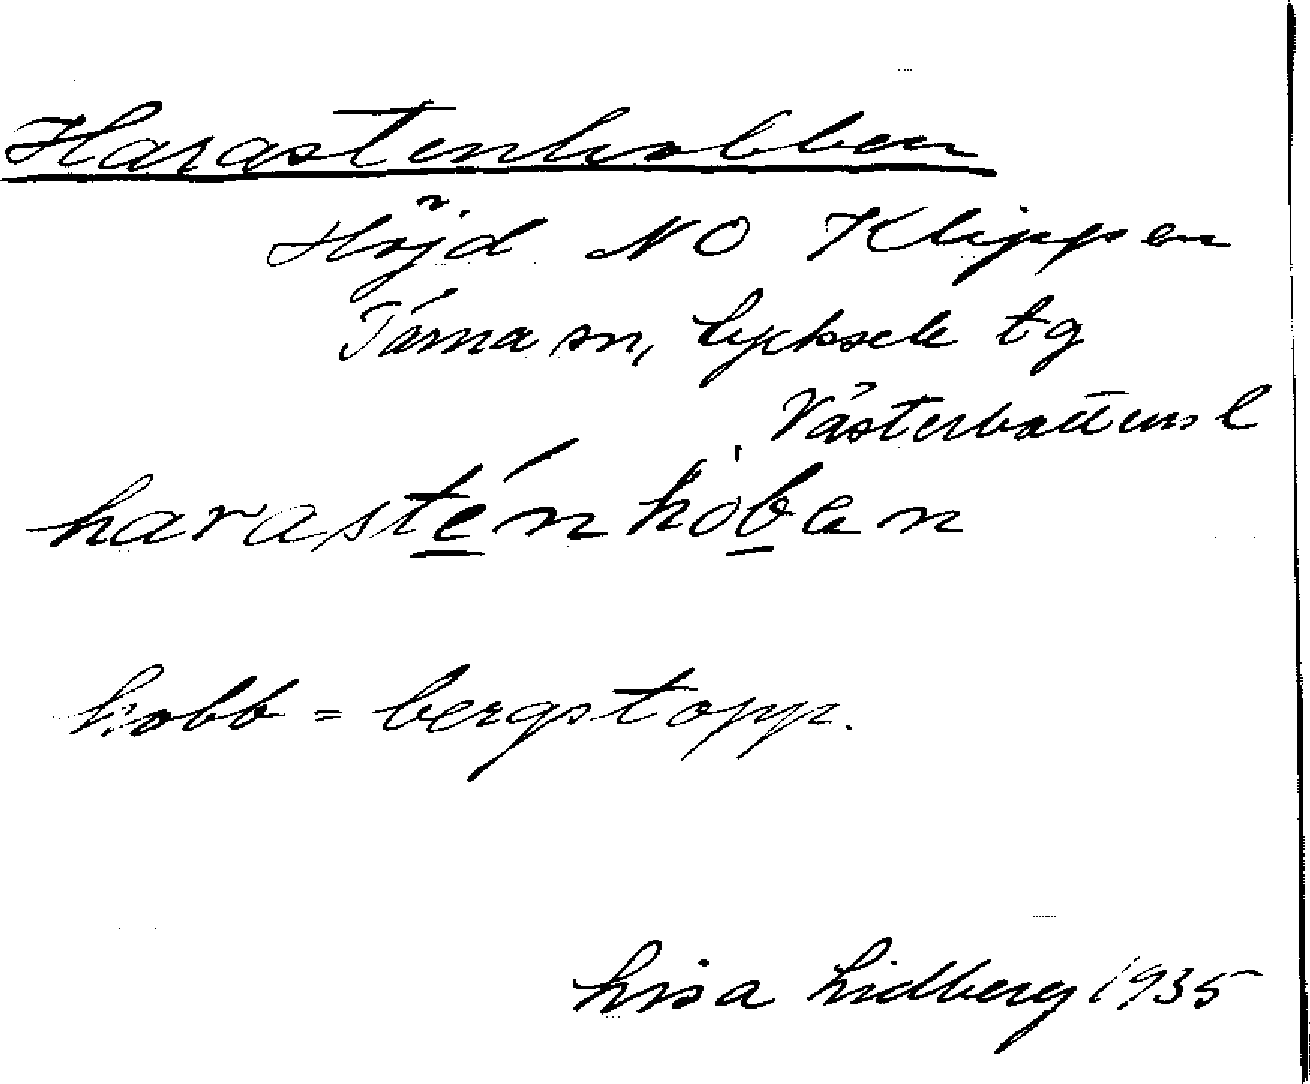 Harastenhobben
Höjd NO Klippen
Tärna sn, Lycksele tg
Västerbottens l
harasténhòban
hobb = bergstopp.
Lisa Lidberg 1935